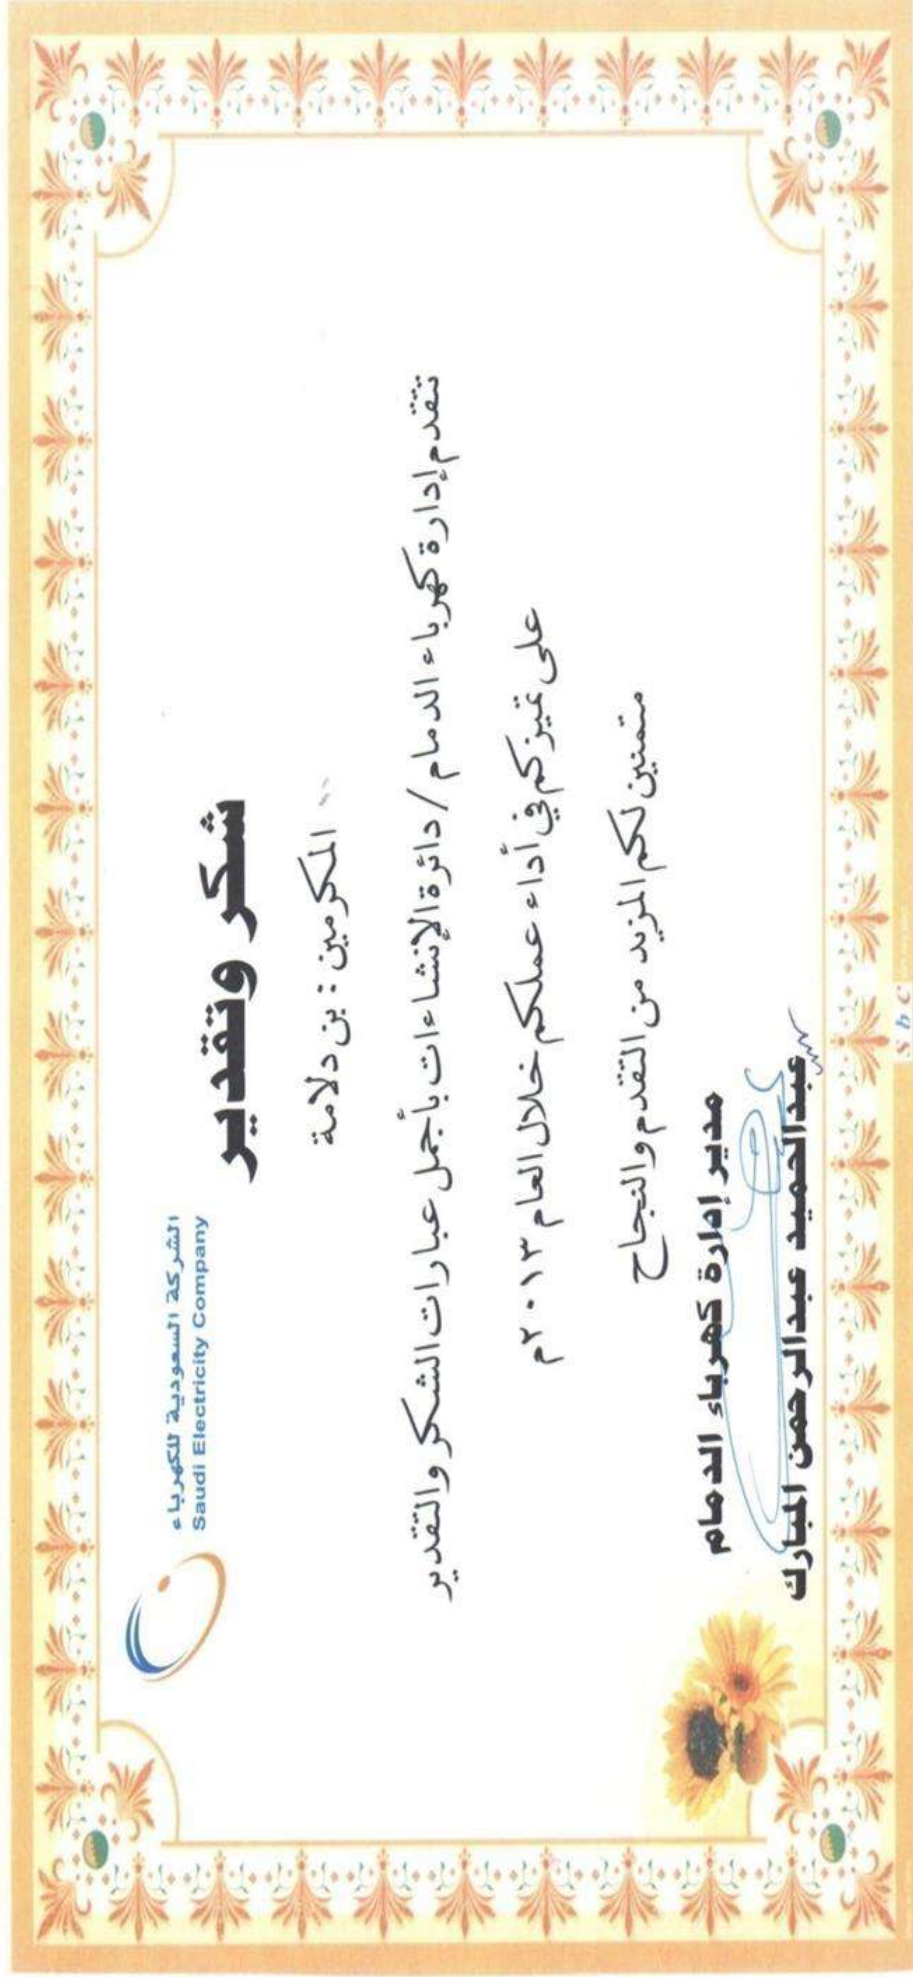 الشركة السعودية للكهرباء
Saudi Electricity Company
شكر وتقدير
المكرمين : بن دلامة
تتقدم إدارة كهرباء الدمام / دائرة الإنشاءات بأجمل عبارات الشكر والتقدير
على تميزكم في أداء عملكم خلال العام ٢٠١٣م
متمنين لكم المزيد من التقدم والنجاح
مدير إدارة كهرباء الدمام
عبدالحميد عبدالرحمن المبارك
s b c